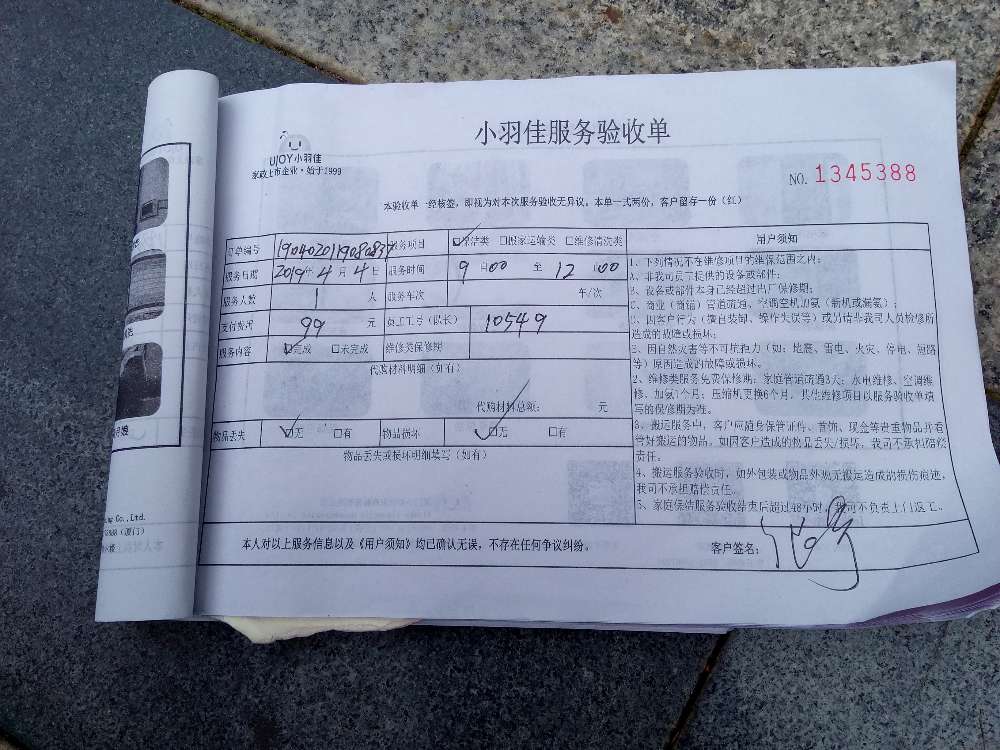 小羽佳服务验收单
UJOY小羽佳
家政上市企业·始于1999
NO. 1345388
本验收单一经核签,即视为对本次服务验收无异议。本单一式两份,客户留存一份(红)
订单编号 服务项目 保洁类 搬家运输类 维修清洗类 用户须知
服务日期 2019年4月4日 服务时间 9:00 至 12:00
服务人数 1 人 服务车次 车/次
支付情况 99 元 员工工号(队长) 10549
服务内容 完成 未完成 维修类保修期
代购材料明细(如有)
代购材料总额: 元
物品丢失 无 有 物品损坏 无 有
物品丢失或损坏明细填写(如有)
1、下列情况不在维修项目的维保范围之内:
A、非我司员工提供的设备或部件;
B、设备或部件本身已经超过出厂保修期;
C、商业(商铺)管道疏通、空调空机加氨(新机或漏氨);
D、因客户行为(擅自装卸、操作失误等)或另请非我司人员检修所
造成的故障或损坏;
E、因自然灾害等不可抗拒力(如:地震、雷电、火灾、停电、短路
等)原因造成的故障或损坏。
2、维修类服务免费保修期:家庭管道疏通3天;水电维修、空调维
修、加氨1个月;压缩机更换6个月,其他维修项目以服务验收单填
写的保修期为准。
3、搬运服务中,客户应随身保管证件、首饰、现金等贵重物品并看
管好搬运的物品,如因客户造成的物品丢失/损坏,我司不承担赔偿
责任。
4、搬运服务验收时,如外包装或物品外观无搬运造成的损伤痕迹,
我司不承担赔偿责任。
5、家庭保洁服务验收结束后超过48小时,我司不负责上门返工。
本人对以上服务信息以及《用户须知》均已确认无误,不存在任何争议纠纷。 客户签名:
Co.,Ltd.
(厦门)